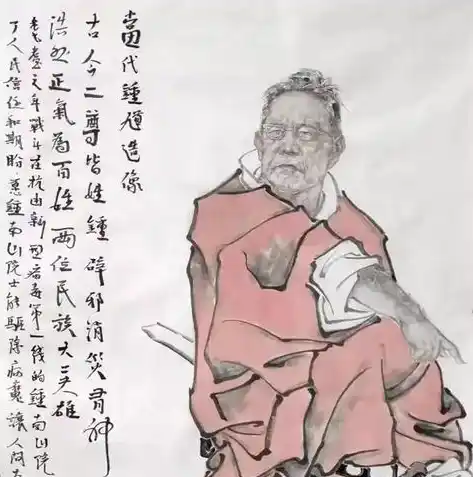 當代鍾馗造像
古今二尊皆姓鍾辟邪消災有神
浩然正氣為百姓兩位民族大英雄
耄耋之年戰斗在抗击新型病毒第一线的鍾南山院
了人民信任和期盼愿鍾南山院士能驱除病魔讓人间